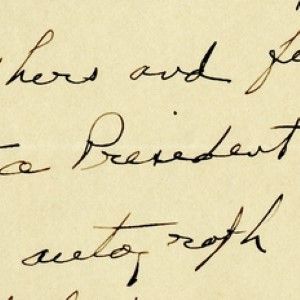 hers and fe
President
autograph